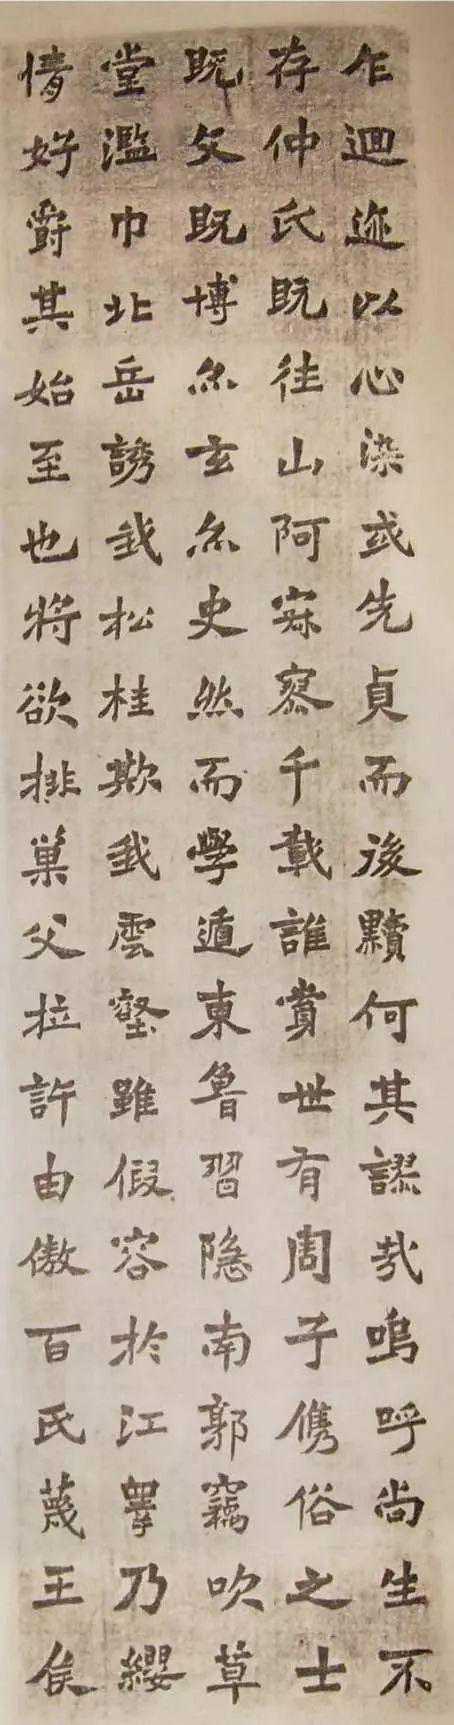 乍迴迹以心染或先貞而後黷何其謬哉嗚呼尚生不
存仲氏既往山阿寂寥千載誰賞世有周子儁俗之士
既文既博亦玄亦史然而學遁東魯習隐南郭竊吹草
堂濫巾北岳誘我松桂欺我雲壑雖假容於江皋乃纓
情好爵其始至也將欲排巢父拉許由傲百氏蔑王侯